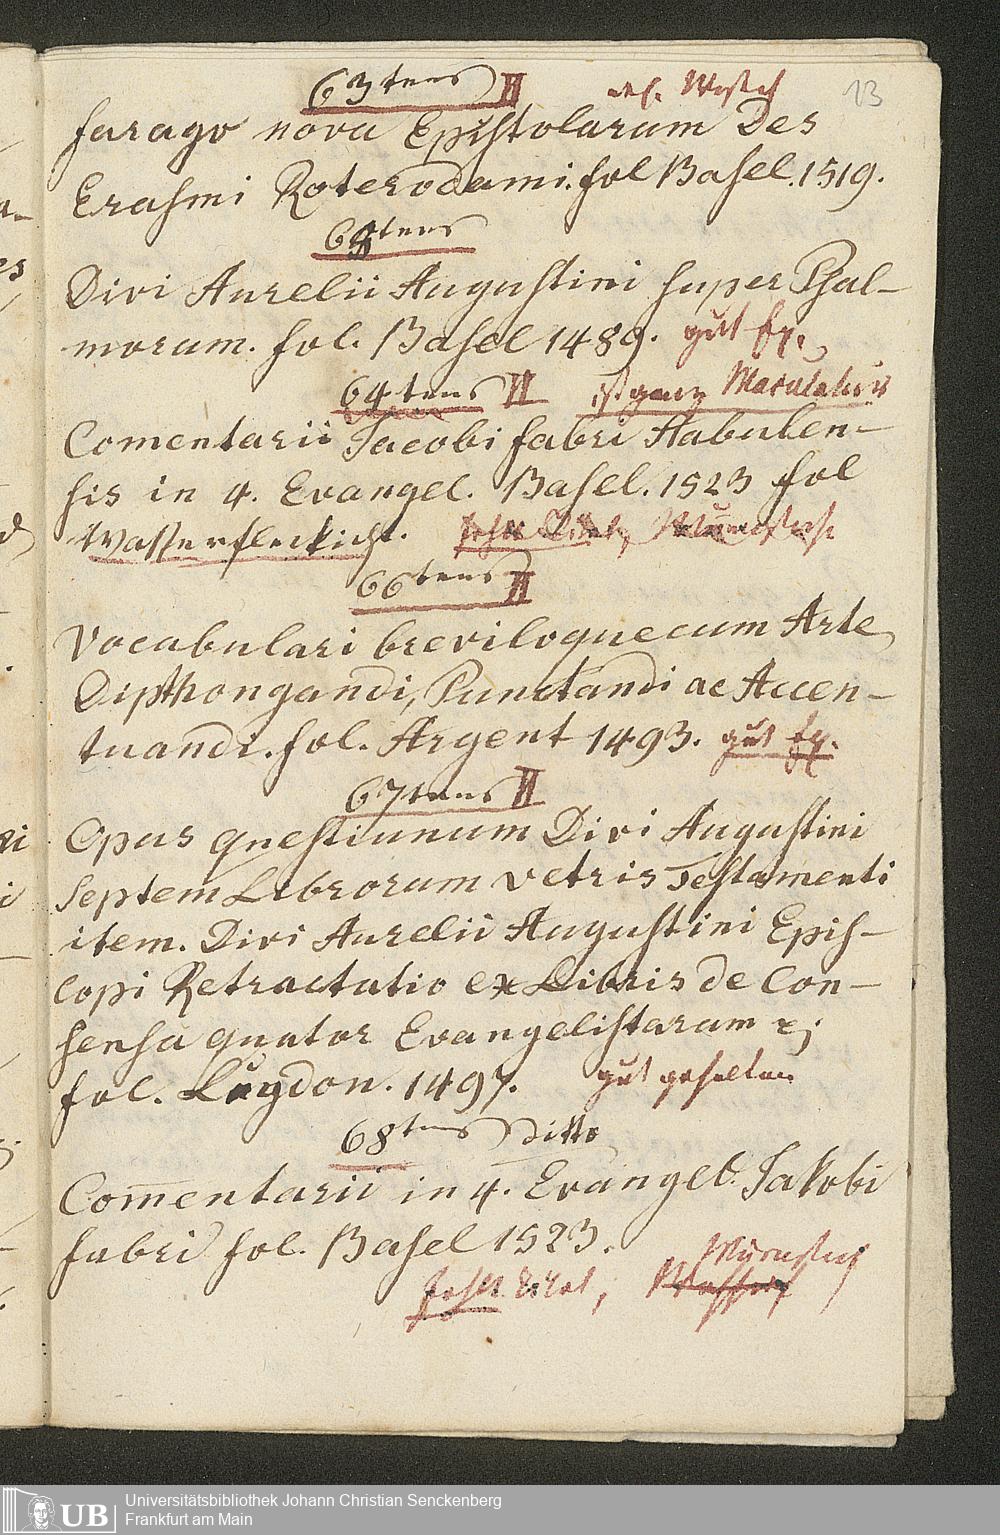 13
63tens II
farago nova Epistolarum Des
Erasmi Roterodami. fol Basel. 1519.
tens
Divi Aurelii Augustini super Psal-
morum. fol. Basel 1489. gut Ex.
64tens II ist ganz Maculatur
Comentarii Jacobi fabri Stabulen-
sis in 4. Evangel. Basel. 1523 fol
Wasserfleckicht. fehlt Titel,
66tens II
Vocabulari breviloquecum Arte
Dipthongandi, Punctandi ac Accen-
tuandi. fol. Argent 1493. gut Ex.
67tens II
Opus questiunum Divi Augustini
septem Librorum vetris Testamenti
item. Divi Aurelii Augustini Epis-
copi Retractatio ex Libris de Con-
sensu quator Evangelistarum
fol. Lugdon. 1497. gut gehalten
68tens Ditto
Com̅entarii in 4. Evangel. Jakobi
fabri fol. Basel 1523.
Wurmstich
fehlt Titel,
UB
Universitätsbibliothek Johann Christian Senckenberg
Frankfurt am Main